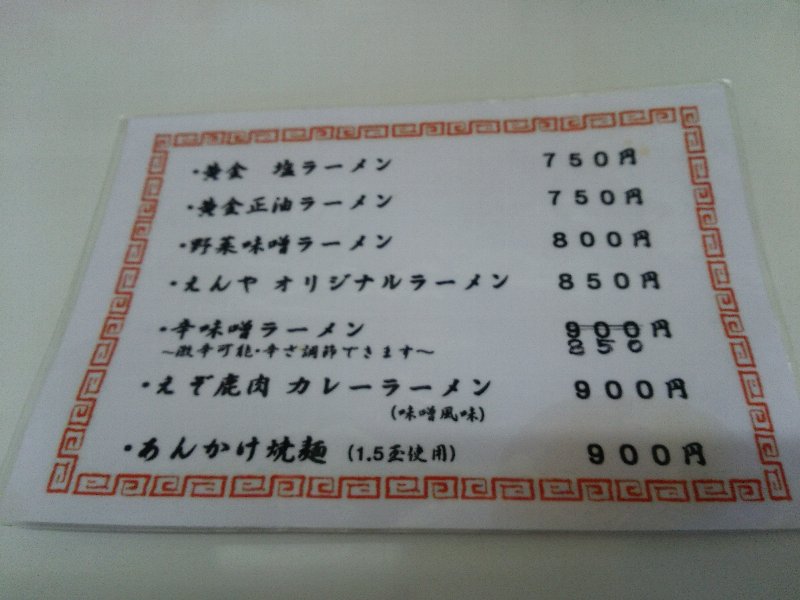 ・黄金 塩ラーメン 750円
・黄金正油ラーメン 750円
・野菜味噌ラーメン 800円
・えんや オリジナルラーメン 850円
・辛味噌ラーメン 900円
～激辛可能・辛さ調節できます～ 850
・えぞ鹿肉 カレーラーメン 900円
(味噌風味)
・あんかけ焼麺 (1.5玉使用) 900円